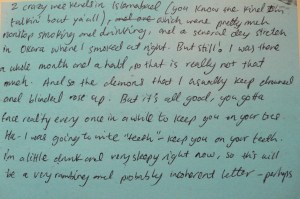 2 crazy weekends in Islamabad (you know me kind I'm
talkin' bout ya'all), which were pretty much
nonstop smoking and drinking, and a several day stretch
in Okara where I smoked at night. But still I was there
a whole month and a half, so that is really not that
much. And so the demons that I usually keep drowned
and blinded rose up. But it's all good, you gotta
face reality every once in a while to keep you on your toes
Ha - I was going to write "teeth" - keep you on your teeth.
I'm a little drunk and very sleepy right now, so this will
be a very rambling and probably incoherent letter - perhaps